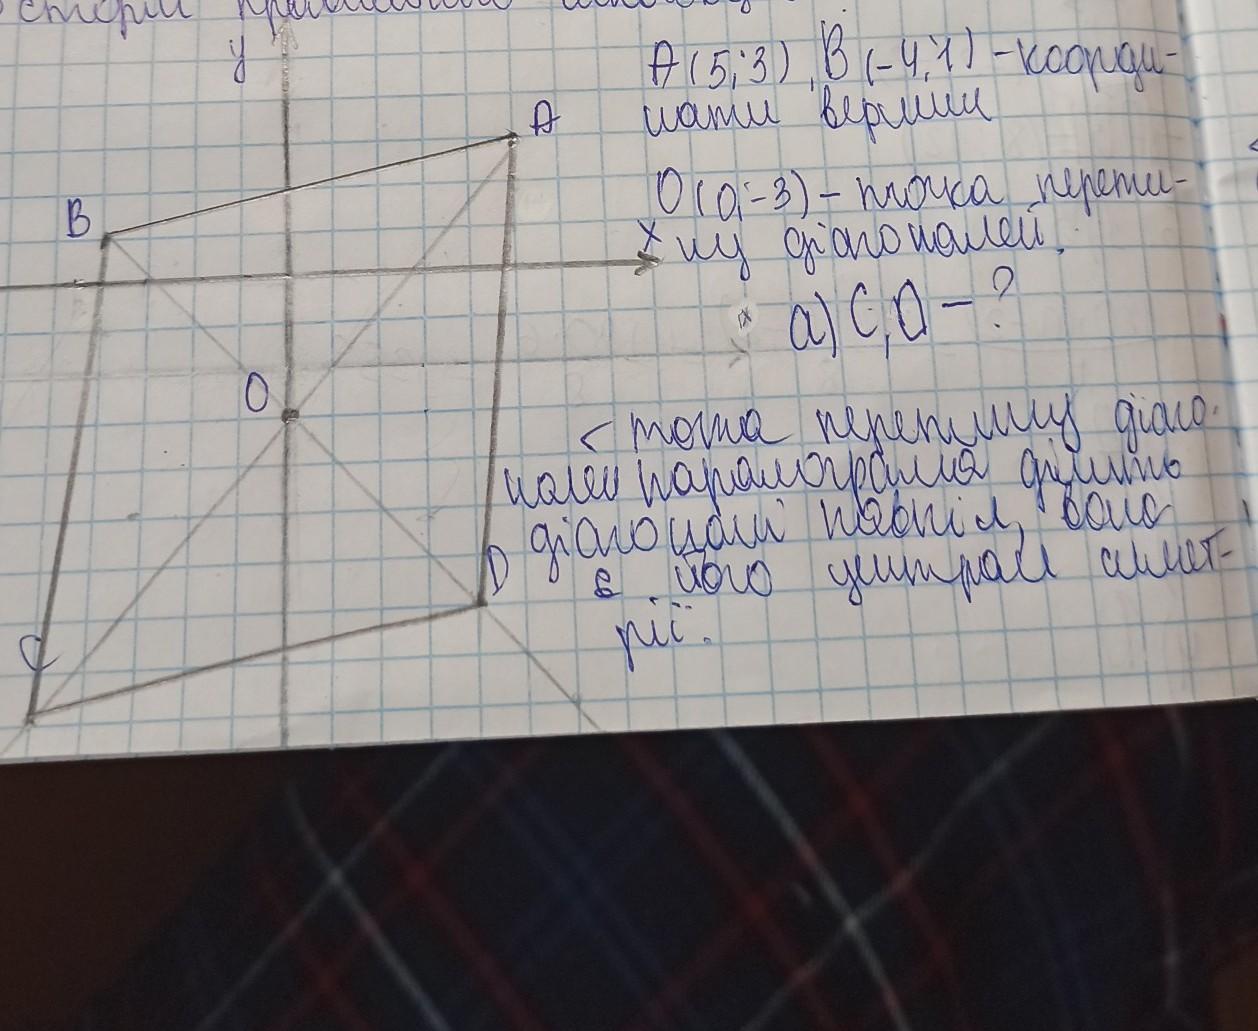 y
A(5;3), B(-4;1) - коорди-
нати вершин
A
B
O(0;-3) - точка перети-
x
ну діагоналей.
а) C, D - ?
O
< точка перетину діаго-
налей паралограма ділить
діагоналі навпіл, вона
D
є його центром симет-
рії.
C